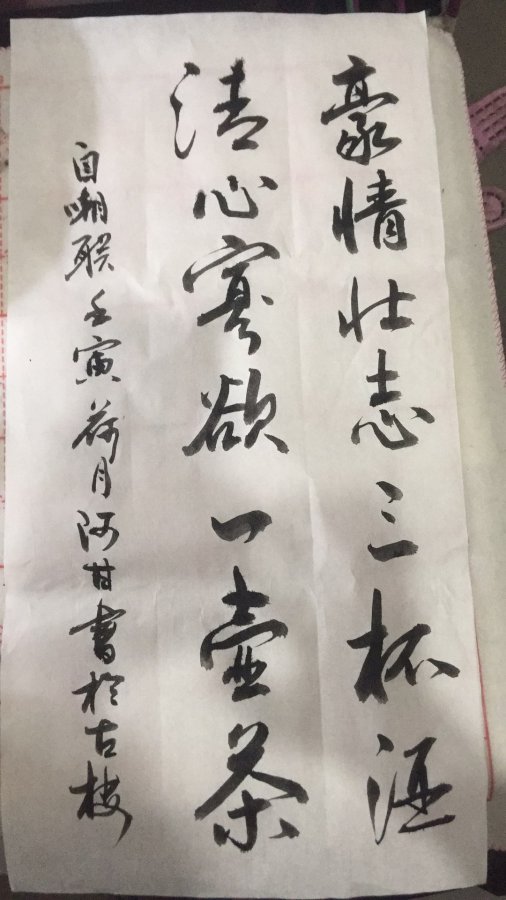 豪情壮志三杯酒
清心寡欲一壶茶
自嘲联壬寅荷月阿甘书於古楼